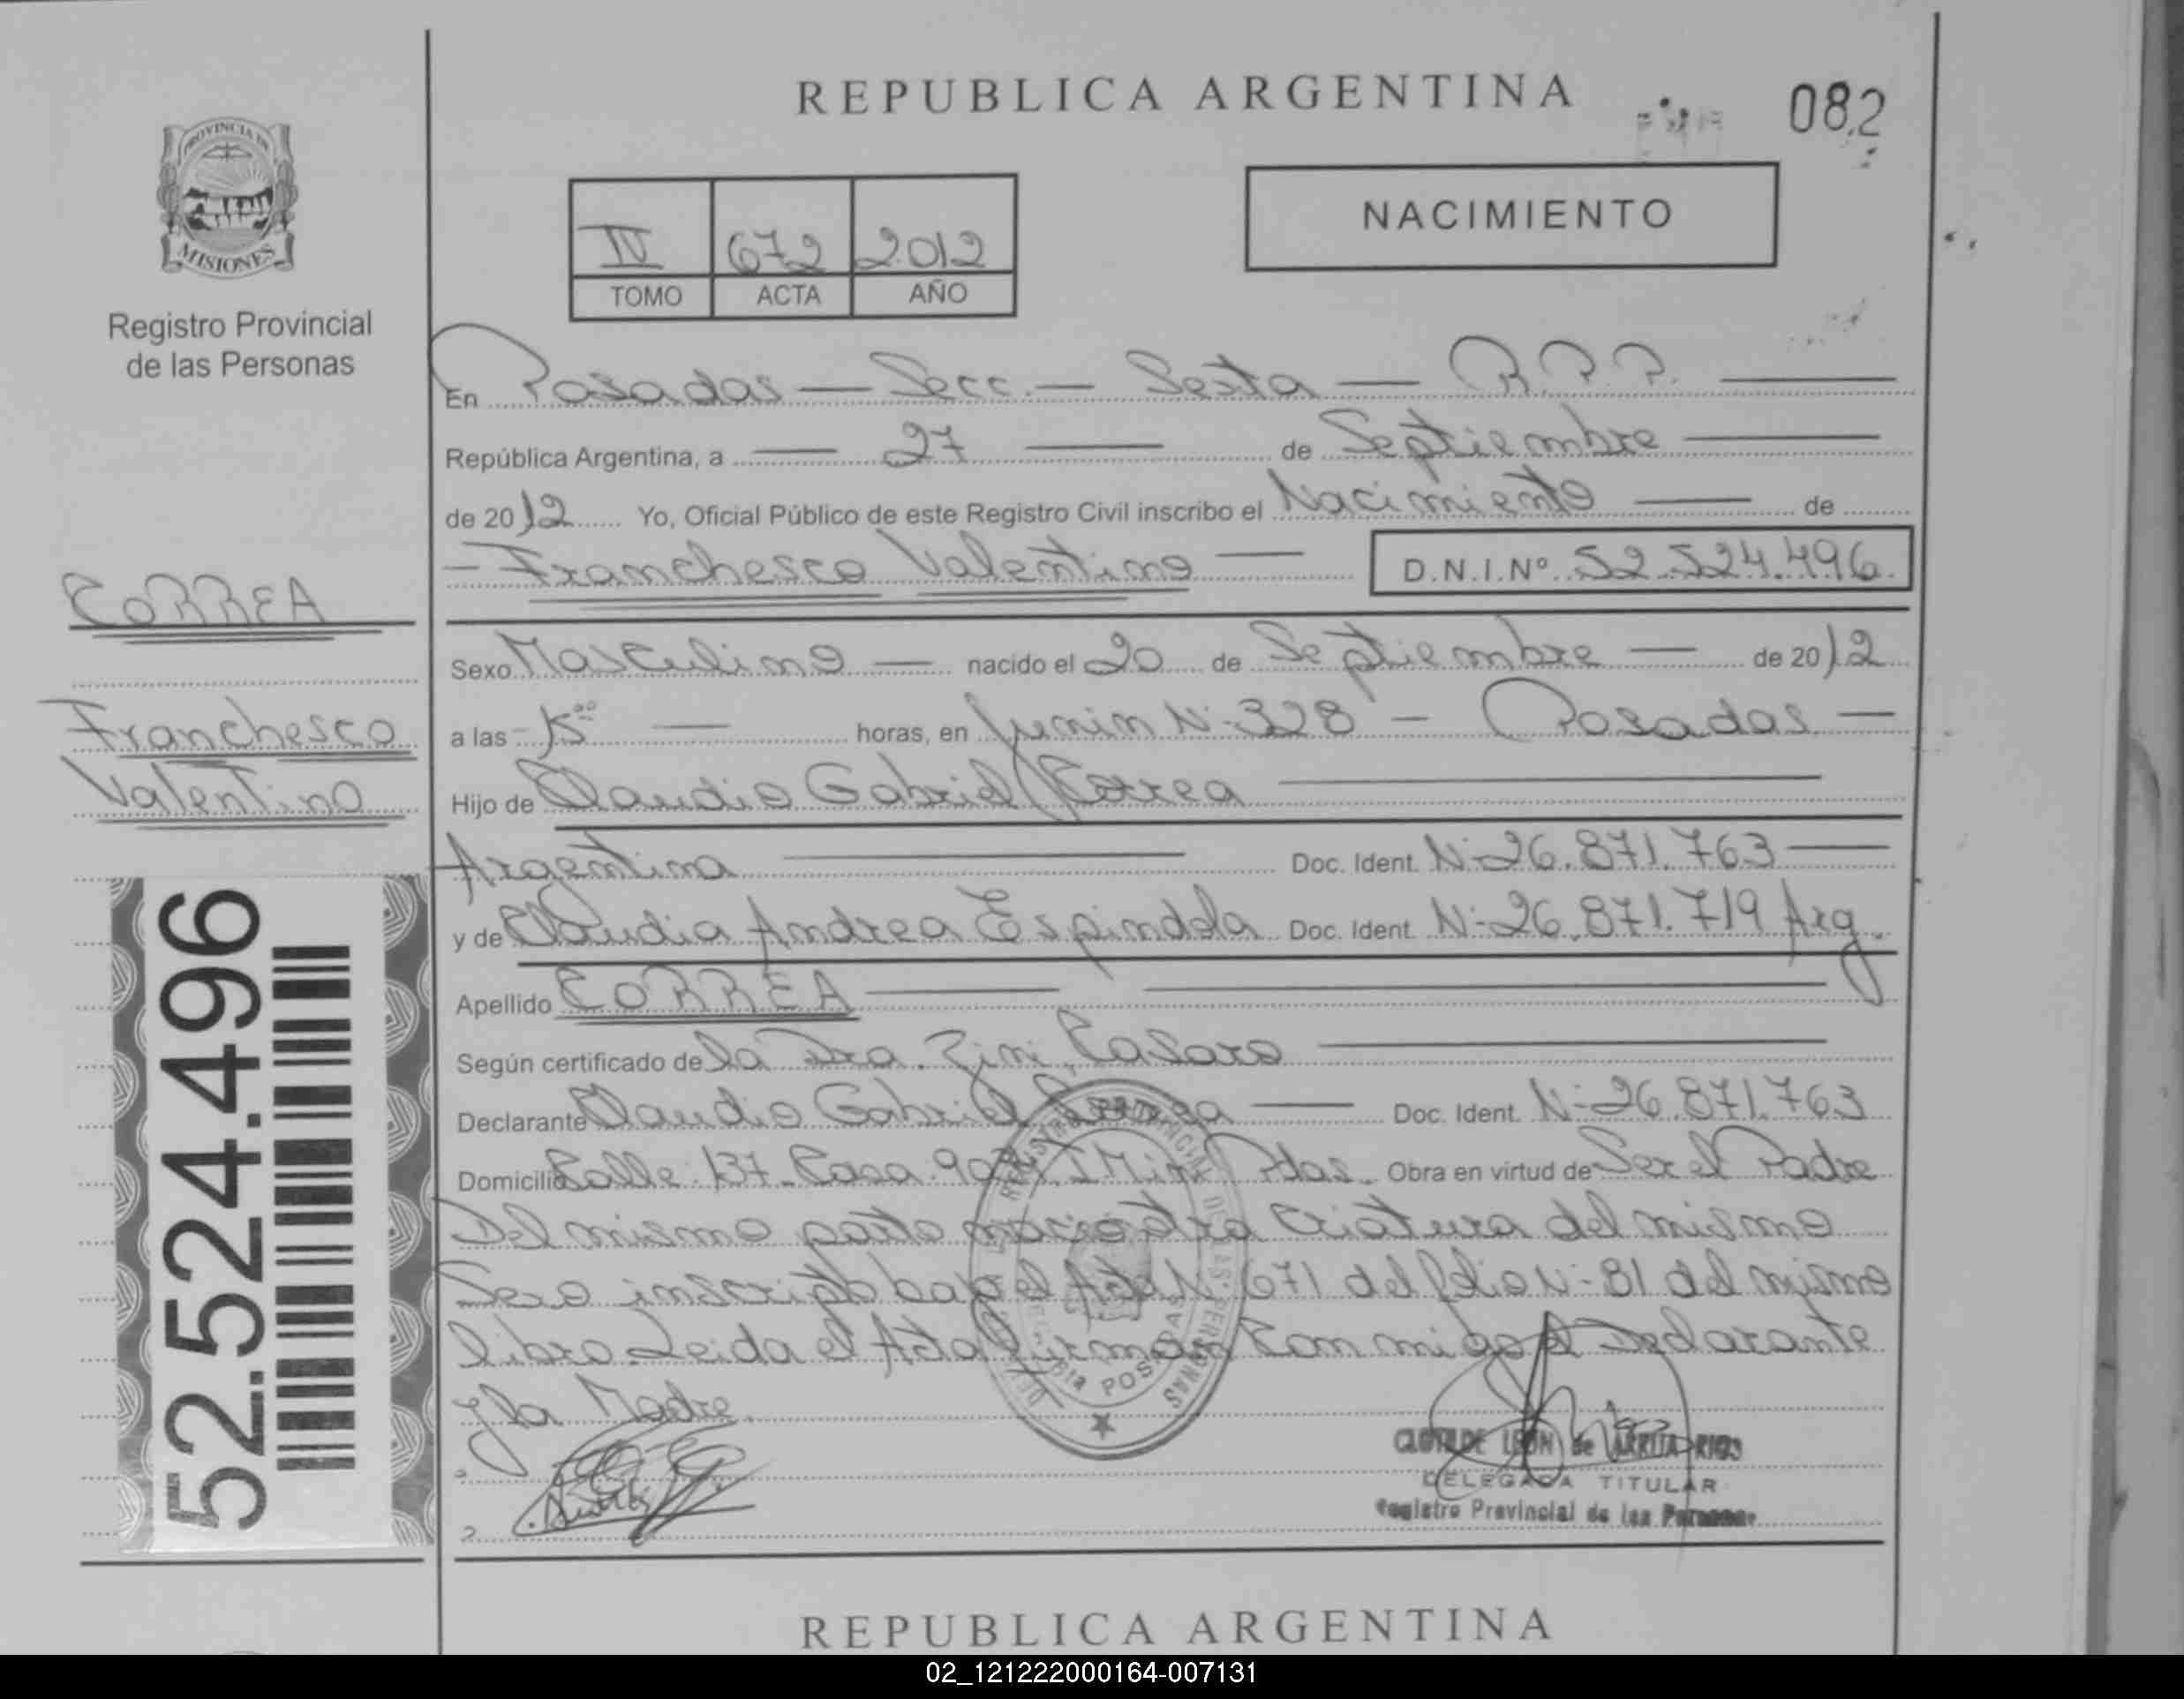 REPUBLICA ARGENTINA
082
PROVINCIA DE
MISIONES
Registro Provincial
de las Personas
IV 672 2012
TOMO ACTA AÑO
NACIMIENTO
En Posadas — Secc. — Sexta — R.P.P.
República Argentina, a — 27 — de Septiembre
de 2012 Yo, Oficial Público de este Registro Civil inscribo el Nacimiento — de
— Franchesco Valentino — D.N.I.Nº 52.524.496
CORREA
Franchesco
Valentino
52.524.496
Sexo Masculino — nacido el 20 de Septiembre — de 2012
a las horas, en Junin Nº 328 — Posadas —
Hijo de Claudio Gabriel Correa
Argentina Doc. Ident. Nº 26.871.763
y de Claudia Andrea Espindola Doc. Ident. Nº 26.871.719 Arg.
Apellido CORREA
Según certificado de la Dra.
Declarante Claudio Gabriel Correa — Doc. Ident. Nº 26.871.763
Domicilio Calle 137 Casa Pdas. Obra en virtud de Ser el Padre
Del mismo parto nació otra criatura del mismo
Sexo inscripto bajo el Acta Nº 671 del folio Nº 81 del mismo
libro. Leida el Acta firman conmigo el Declarante
y la Madre.
REGISTRO PROVINCIAL DE LAS PERSONAS
6ta POSADAS
CLOTILDE LEON de ARRITA RIOS
DELEGADA TITULAR
Registro Provincial de las Personas
REPUBLICA ARGENTINA
02_121222000164-007131